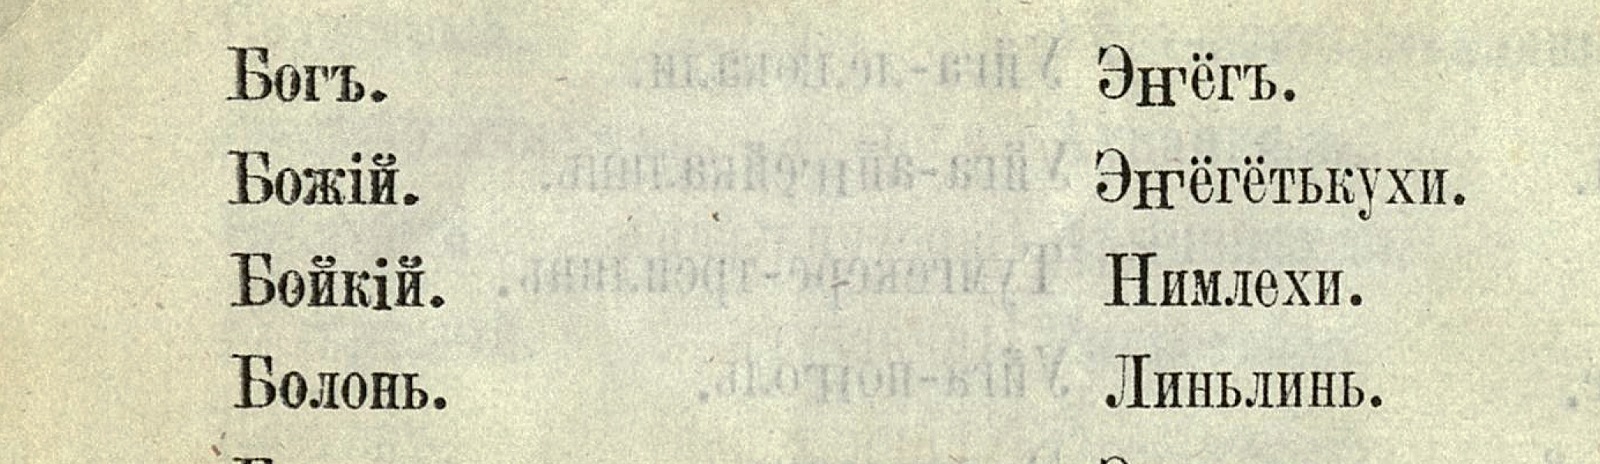 Богъ. Эҥёгъ.
Божій. Эҥёгётькухи.
Бойкій. Нимлехи.
Болонь. Линьлинь.